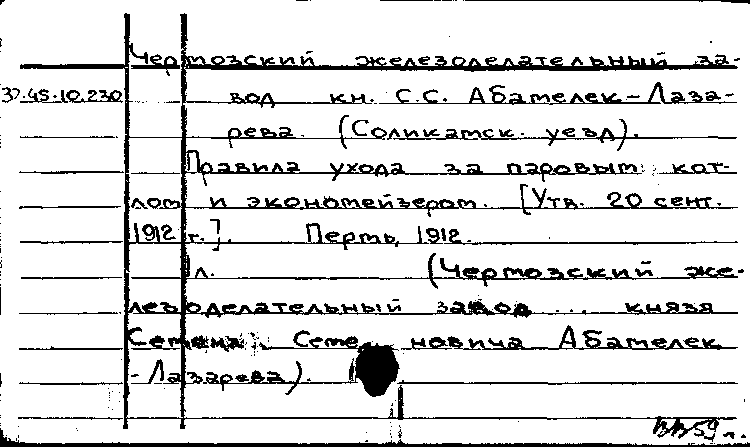 Чермозский железоделательный за-
37.45.10.230 вод кн. С.С. Абамелек-Лаза-
рева. (Соликамск. уезд).
Правила ухода за паровым кот-
лом и экономейзером. [Утв. 20 сент.
1912 г.]. Пермь, 1912.
1 л. (Чермозский же-
лезоделательный завод ... князя
Семена Семеновича Абамелек
-Лазарева).